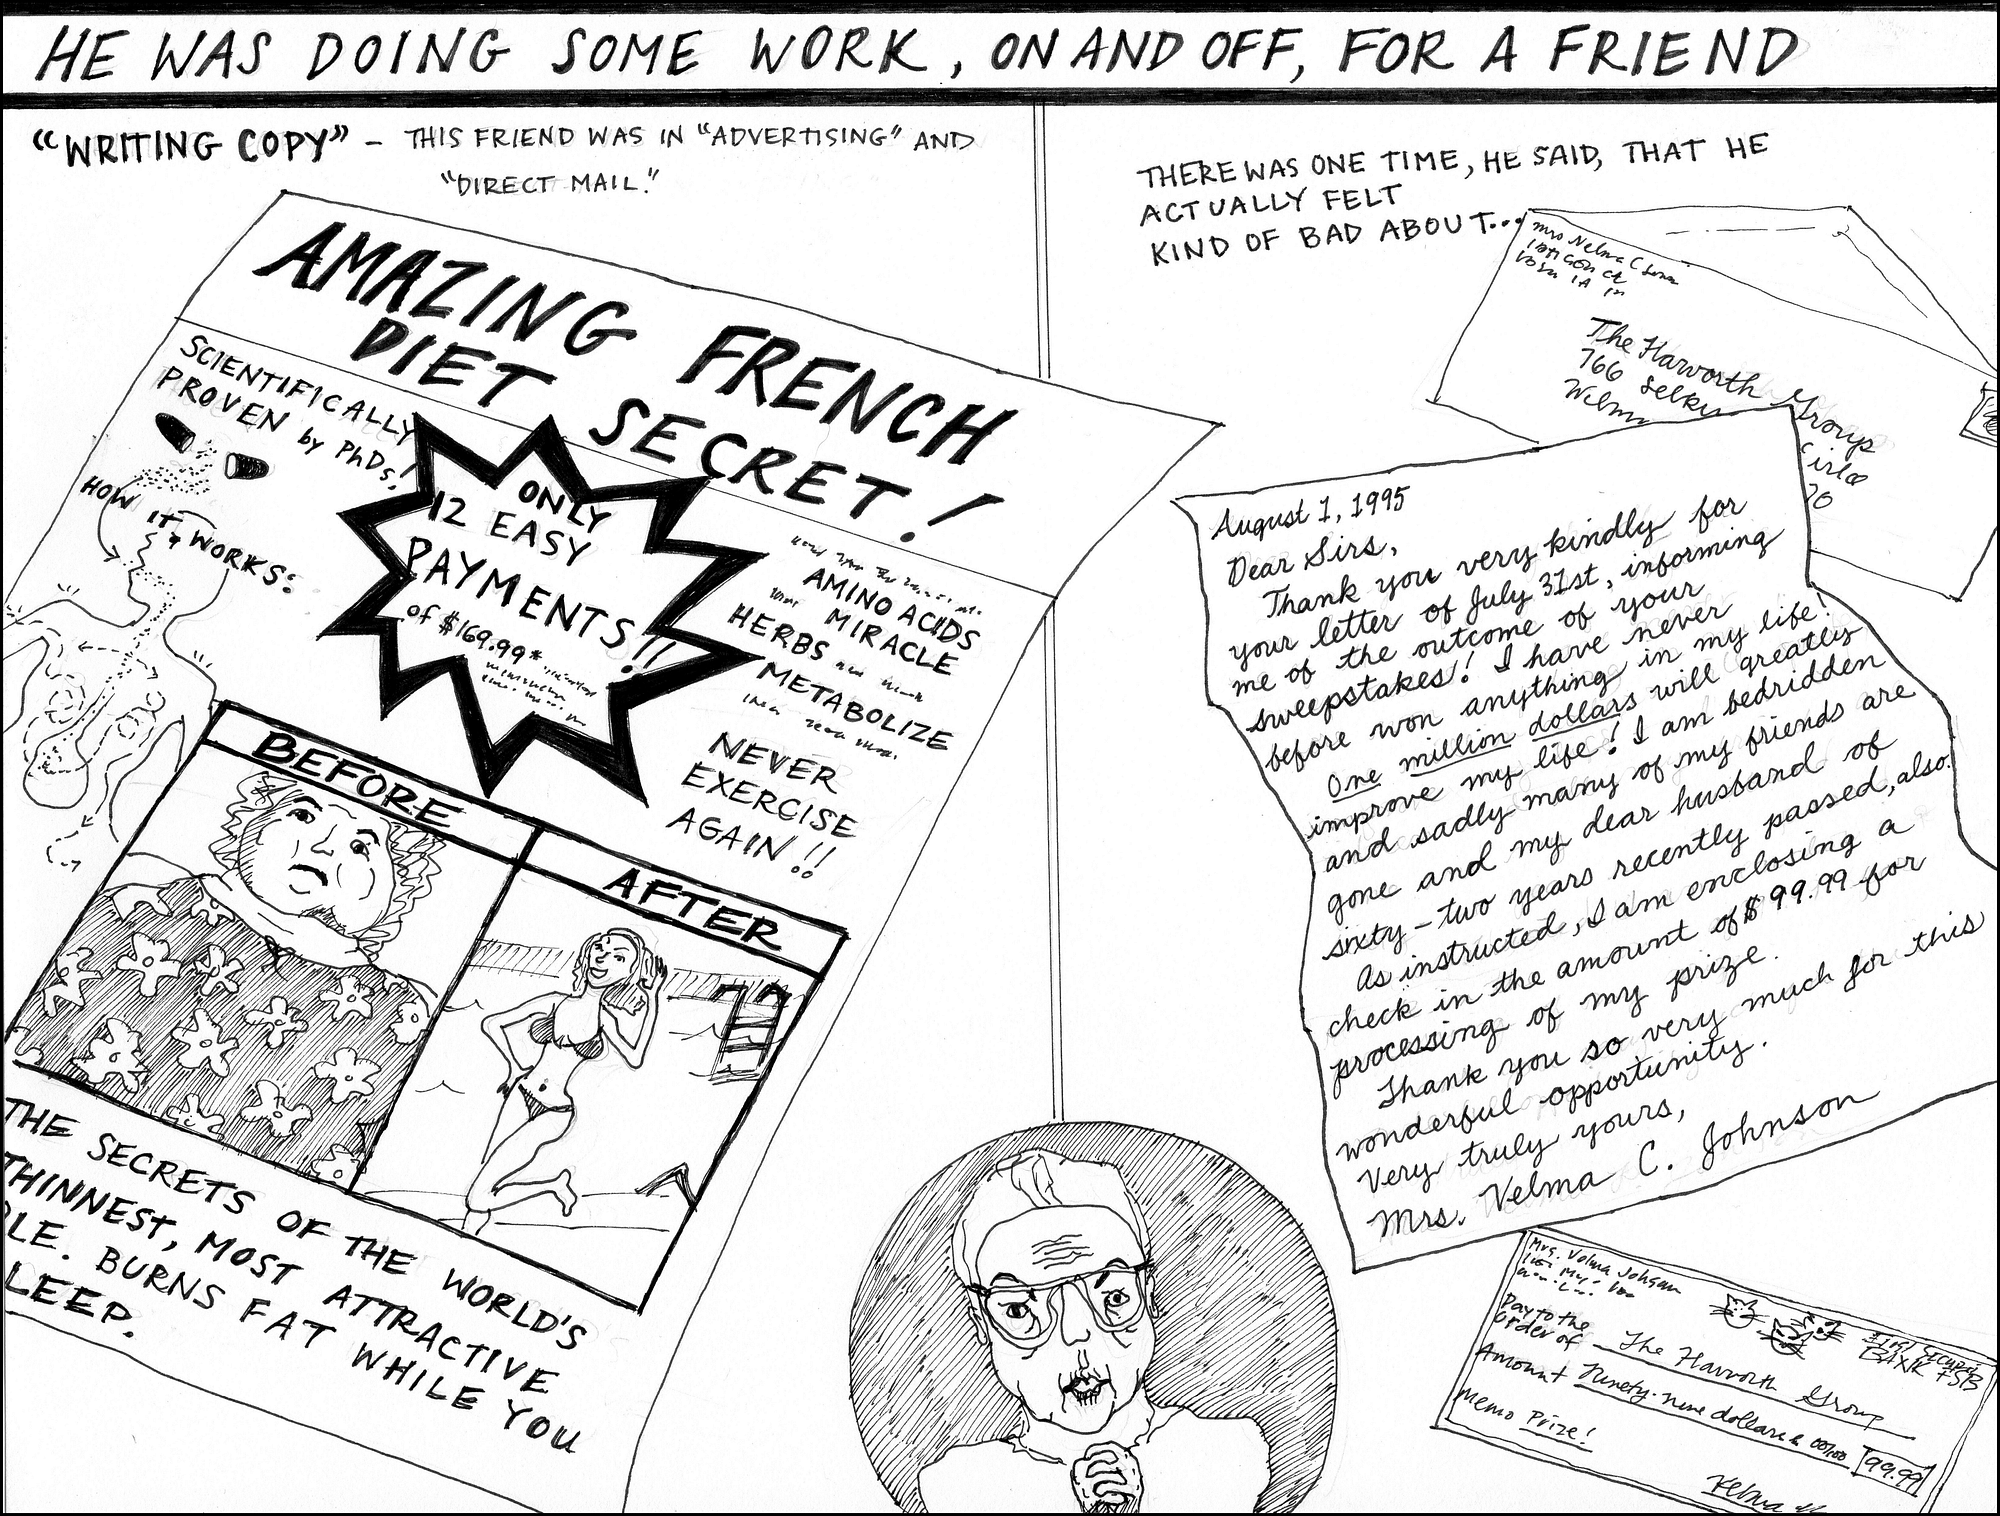 HE WAS DOING SOME WORK, ON AND OFF, FOR A FRIEND
"WRITING COPY" – THIS FRIEND WAS IN "ADVERTISING" AND
"DIRECT MAIL."
AMAZING FRENCH
DIET SECRET!
SCIENTIFICALLY
PROVEN by PhDs!
HOW IT WORKS:
ONLY
12 EASY
PAYMENTS!!
of $169.99*
AMINO ACIDS
MIRACLE
HERBS
METABOLIZE
NEVER
EXERCISE
AGAIN!!
BEFORE
AFTER
THE SECRETS OF THE WORLD'S
THINNEST, MOST ATTRACTIVE
LE. BURNS FAT WHILE YOU
LEEP.
THERE WAS ONE TIME, HE SAID, THAT HE
ACTUALLY FELT
KIND OF BAD ABOUT...
The Harworth Group
766 Selky
August 1, 1995
Dear Sirs,
Thank you very kindly for
your letter of July 31st, informing
me of the outcome of your
sweepstakes! I have never
before won anything in my life!
One million dollars will greatly
improve my life! I am bedridden
and sadly many of my friends are
gone and my dear husband of
sixty-two years recently passed, also.
As instructed, I am enclosing a
check in the amount of $99.99 for
processing of my prize.
Thank you so very much for this
wonderful opportunity.
Very truly yours,
Mrs. Velma C. Johnson
Mrs. Velma Johnson
Pay to the
Order of The Harworth Group
BANK FSB
Amount Ninety-nine dollars & 99/100 99.99
Memo Prize!
Velma